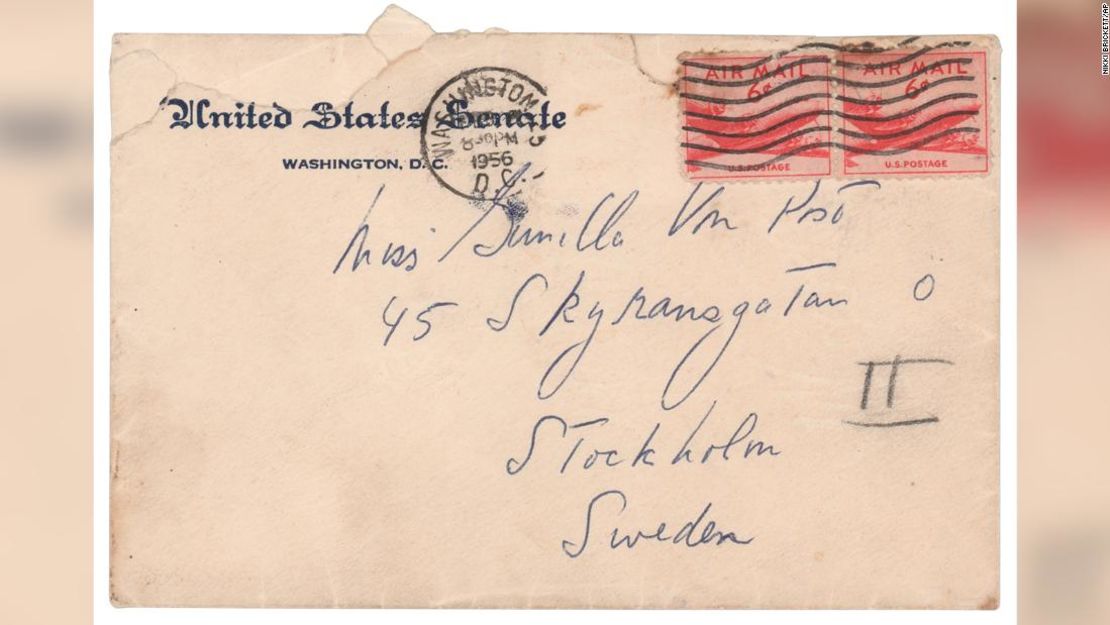 United States Senate
WASHINGTON, D.C.
WASHINGTON
830PM
1956
D.C.
AIR MAIL
6¢
U.S.POSTAGE
AIR MAIL
6¢
U.S.POSTAGE
Miss Gunilla Von Post
45 Skyransgatan Ö
II
Stockholm
Sweden
NIKKI BRICKETT/AP